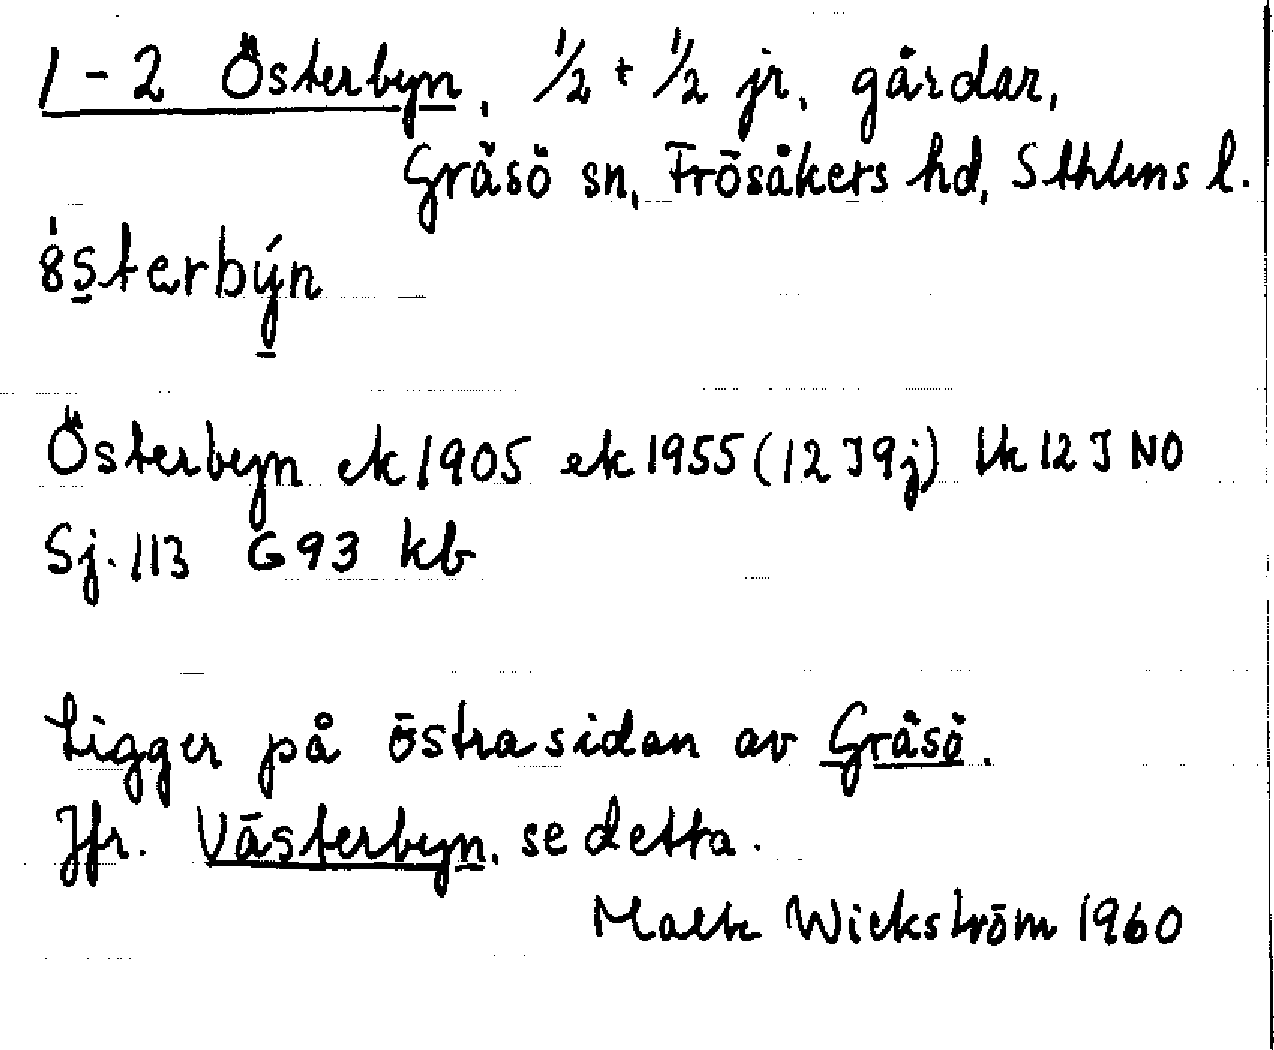 1-2 Österbyn, 1/2 + 1/2 jr. gårdar,
Gräsö sn, Frösåkers hd, Sthlms l.
österbýn
Österbyn ek 1905 ek 1955 (12 I 9j) tk 12 I NO
Sj. 113 G 93 kb
Ligger på östra sidan av Gräsö.
Jfr. Västerbyn, se detta.
Wickström 1960